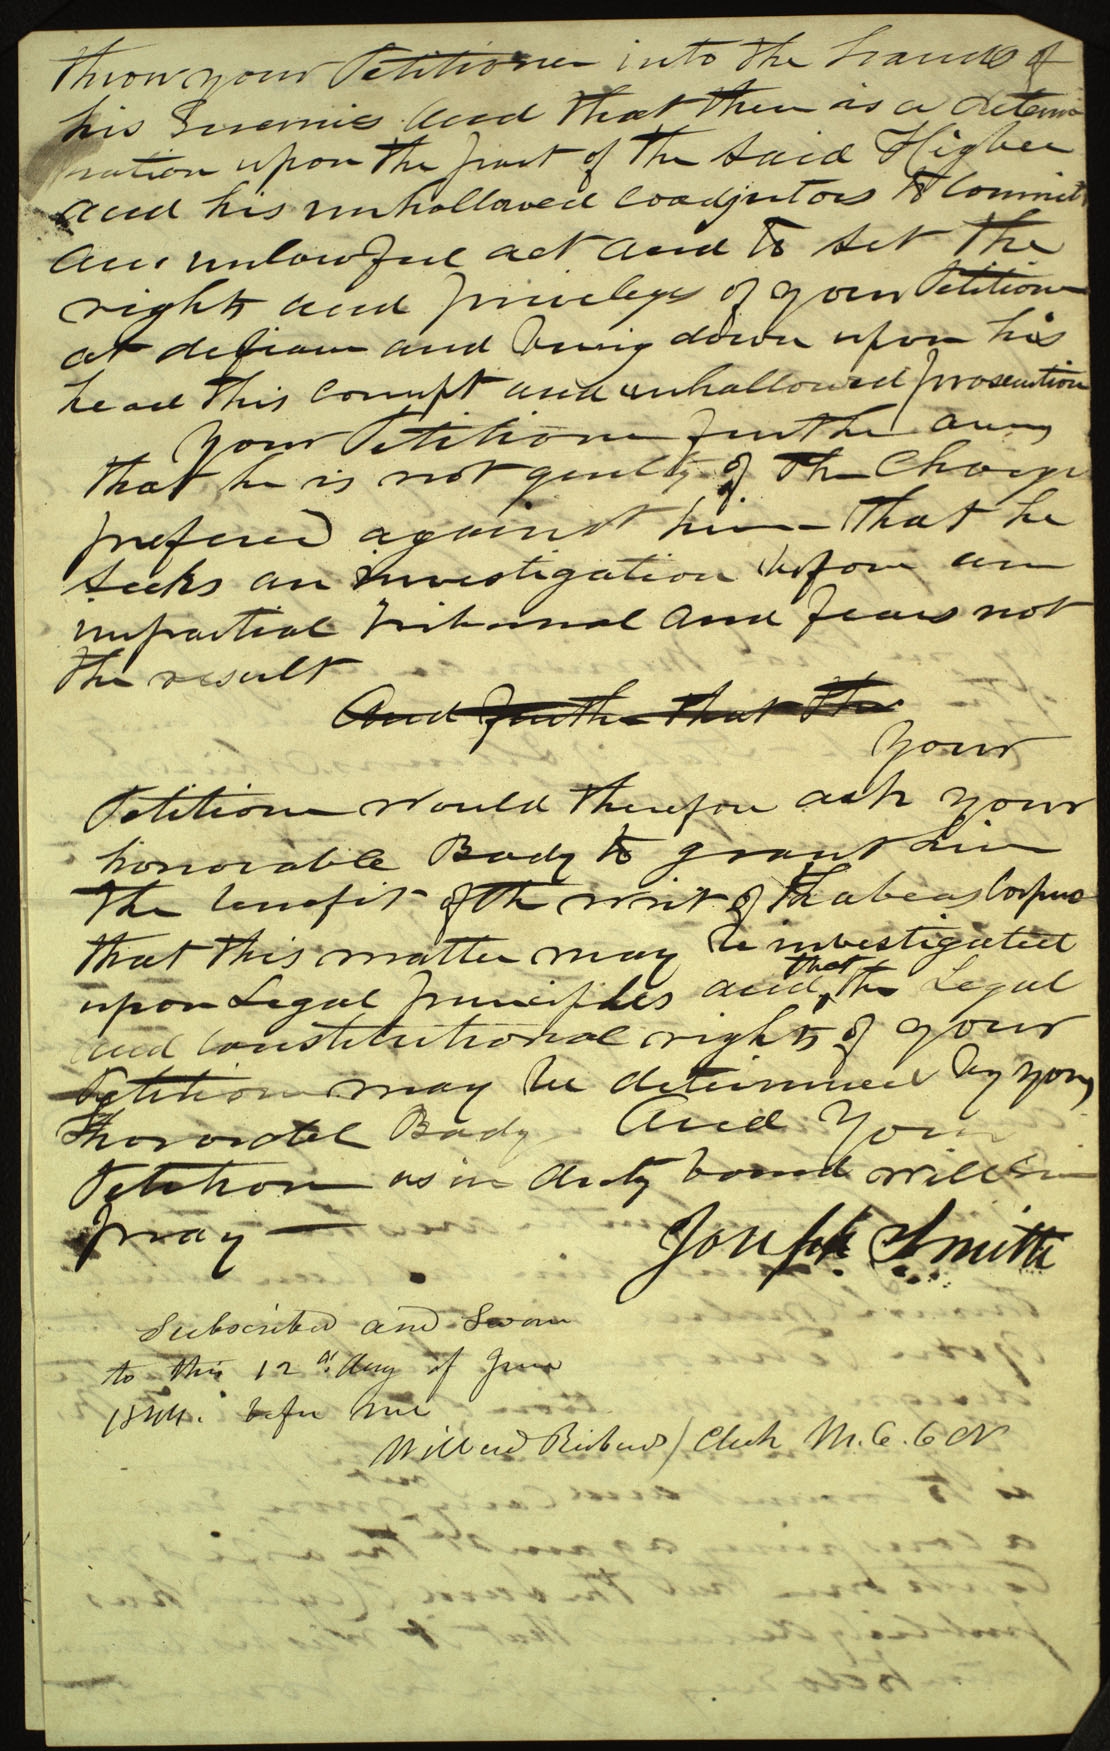 throw your Petitioner into the hands of
his Enemies and that there is a determi
nation upon the part of the said Higbee
and his unhallowed coadjutors to commit
an unlawful act and to set the
rights and privileges of your Petitioner
at defiance and bring down upon his
head this corrupt and unhallowed prosecution
Your Petitioner further avers
that he is not guilty of the Charge
prefered against him— that he
seeks an investigation before an
impartial tribunal and fears not
the result
And further that the
Your
Petitioner would therefore ask your
honorable Body to grant him
the benefit of the writ of Habeas Corpus
that this matter may be investigated
upon Legal principles and that the Legal
and constitutional rights of your
Petitioner may be determined by your
Honorable Body And Your
Petitioner as in duty bound will Ever
pray—
Joseph Smith
Subscribed and Sworn
to this 12th day of June
1844. before me
Willard Richards Clerk M. C. C N